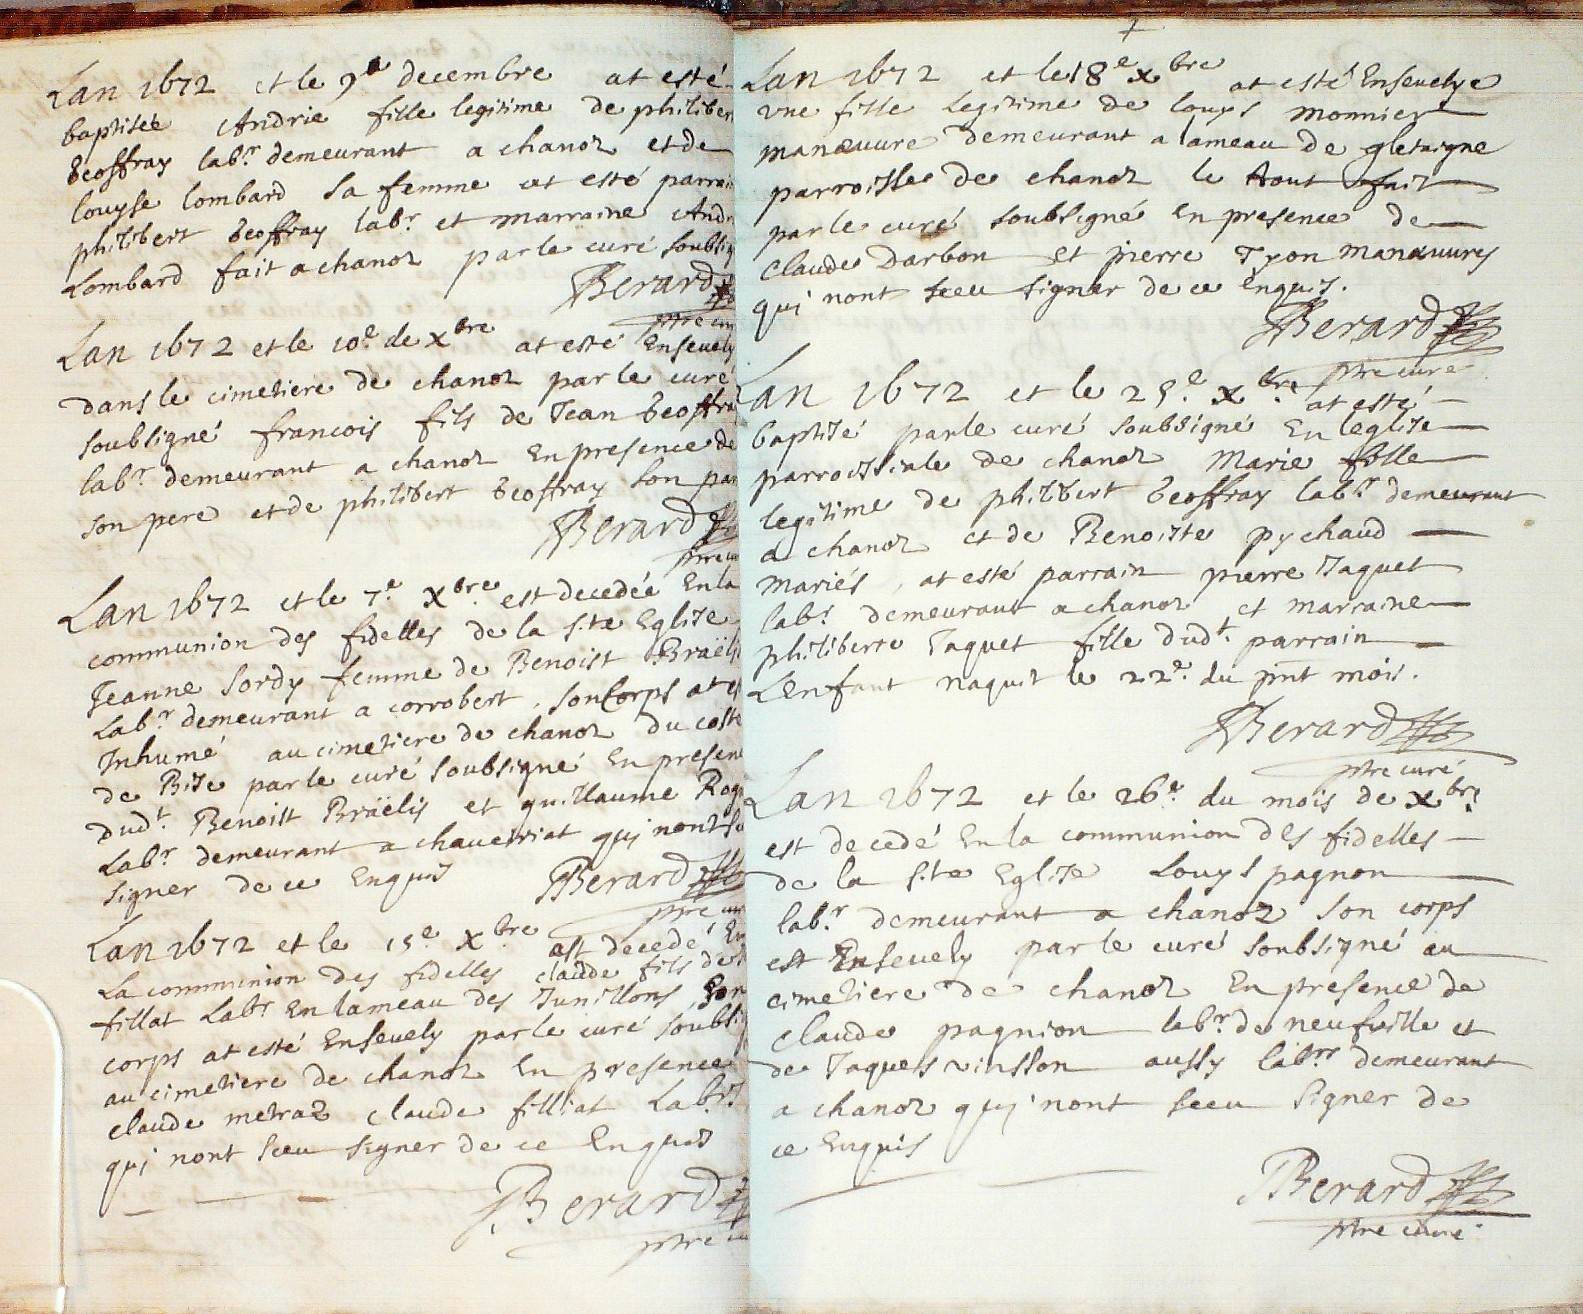 Lan 1672 et le 9e decembre at esté
baptisée Andrie fille legitime de philiber
beoffray labr demeurant a chanoz et de
louyse lombard sa femme at esté parrai
philibert beoffray labr et marraine Andr
Lombard fait a chanoz par le curé soubsig
Berard
ptre cu
Lan 1672 et le 10e de Xbre at esté Ensevely
dans le cimetiere de chanoz par le curé
soubsigné francois fils de Jean beoffra
labr demeurant a chanoz En presence de
son pere et de philibert beoffray son par
Berard
ptre cu
Lan 1672 et le 7e Xbre est decedée En la
communion des fidelles de la ste Eglise
Jeanne Sordy femme de Benoist Braëli
Labr demeurant a corrobert. son Corps at e
Inhumé au cimetiere de chanoz du coste
de Bise par le curé soubsigné En presen
dudt Benoist Braëlis et guillaume Rog
Labr demeurant a chaveyriat qui nont s
signer de ce Enquis
Berard
ptre cu
Lan 1672 et le 15e Xbre est decedé En
La communion des fidelles claude fils de
fillat Labr En lameau des Junillons Son
corps at esté Ensevely par le curé soubsi
au cimetiere de chanoz En presence
claude metraz claude filliat Labrs
qui nont sceu signer de ce Enquis
Berard
ptre cu
Lan 1672 et le 18e xbre at esté Ensevelye
une fille legitime de louys monnier
manœuvre demeurant a lameau de gletaigne
parroisse de chanoz le tout fait
par le curé soubsigné En presence de
Claude Darbon et pierre Tyon manœuvres
qui nont sceu signer de ce Enquis.
Berard
ptre curé
Lan 1672 et le 25e xbre at esté
baptisé par le curé soubsigné En leglise
parroissiale de chanoz Marie fille
legitime de philibert beoffray labr demeurant
a chanoz et de Benoiste pychaud
mariés, at esté parrain pierre Jaquet
labr demeurant a chanoz et marraine
philiberte Jaquet fille dudt parrain
LEnfant naquit le 22e du pnt mois.
Berard
ptre curé
Lan 1672 et le 26e du mois de xbre
est decedé En la communion des fidelles
de la ste Eglise Louys pagnon
labr demeurant a chanoz son corps
est Ensevely par le curé soubsigné au
cimetiere de chanoz En presence de
claude pagnion labr de neufville et
de Jaques vinsson aussy labrs demeurant
a chanoz qui nont sceu signer de
ce Enquis
Berard
ptre curé